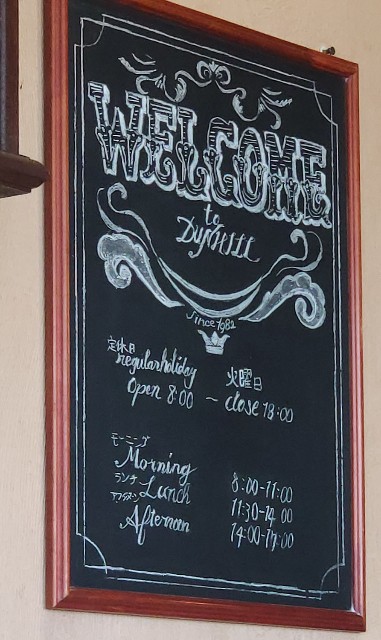 WELCOME
to
DuNHILL
Since 1982
定休日
regular holiday 火曜日
Open 8:00 ~ close 18:00
モーニング
Morning 8:00-11:00
ランチ
Lunch 11:30-14:00
アフタヌーン
Afternoon 14:00-17:00